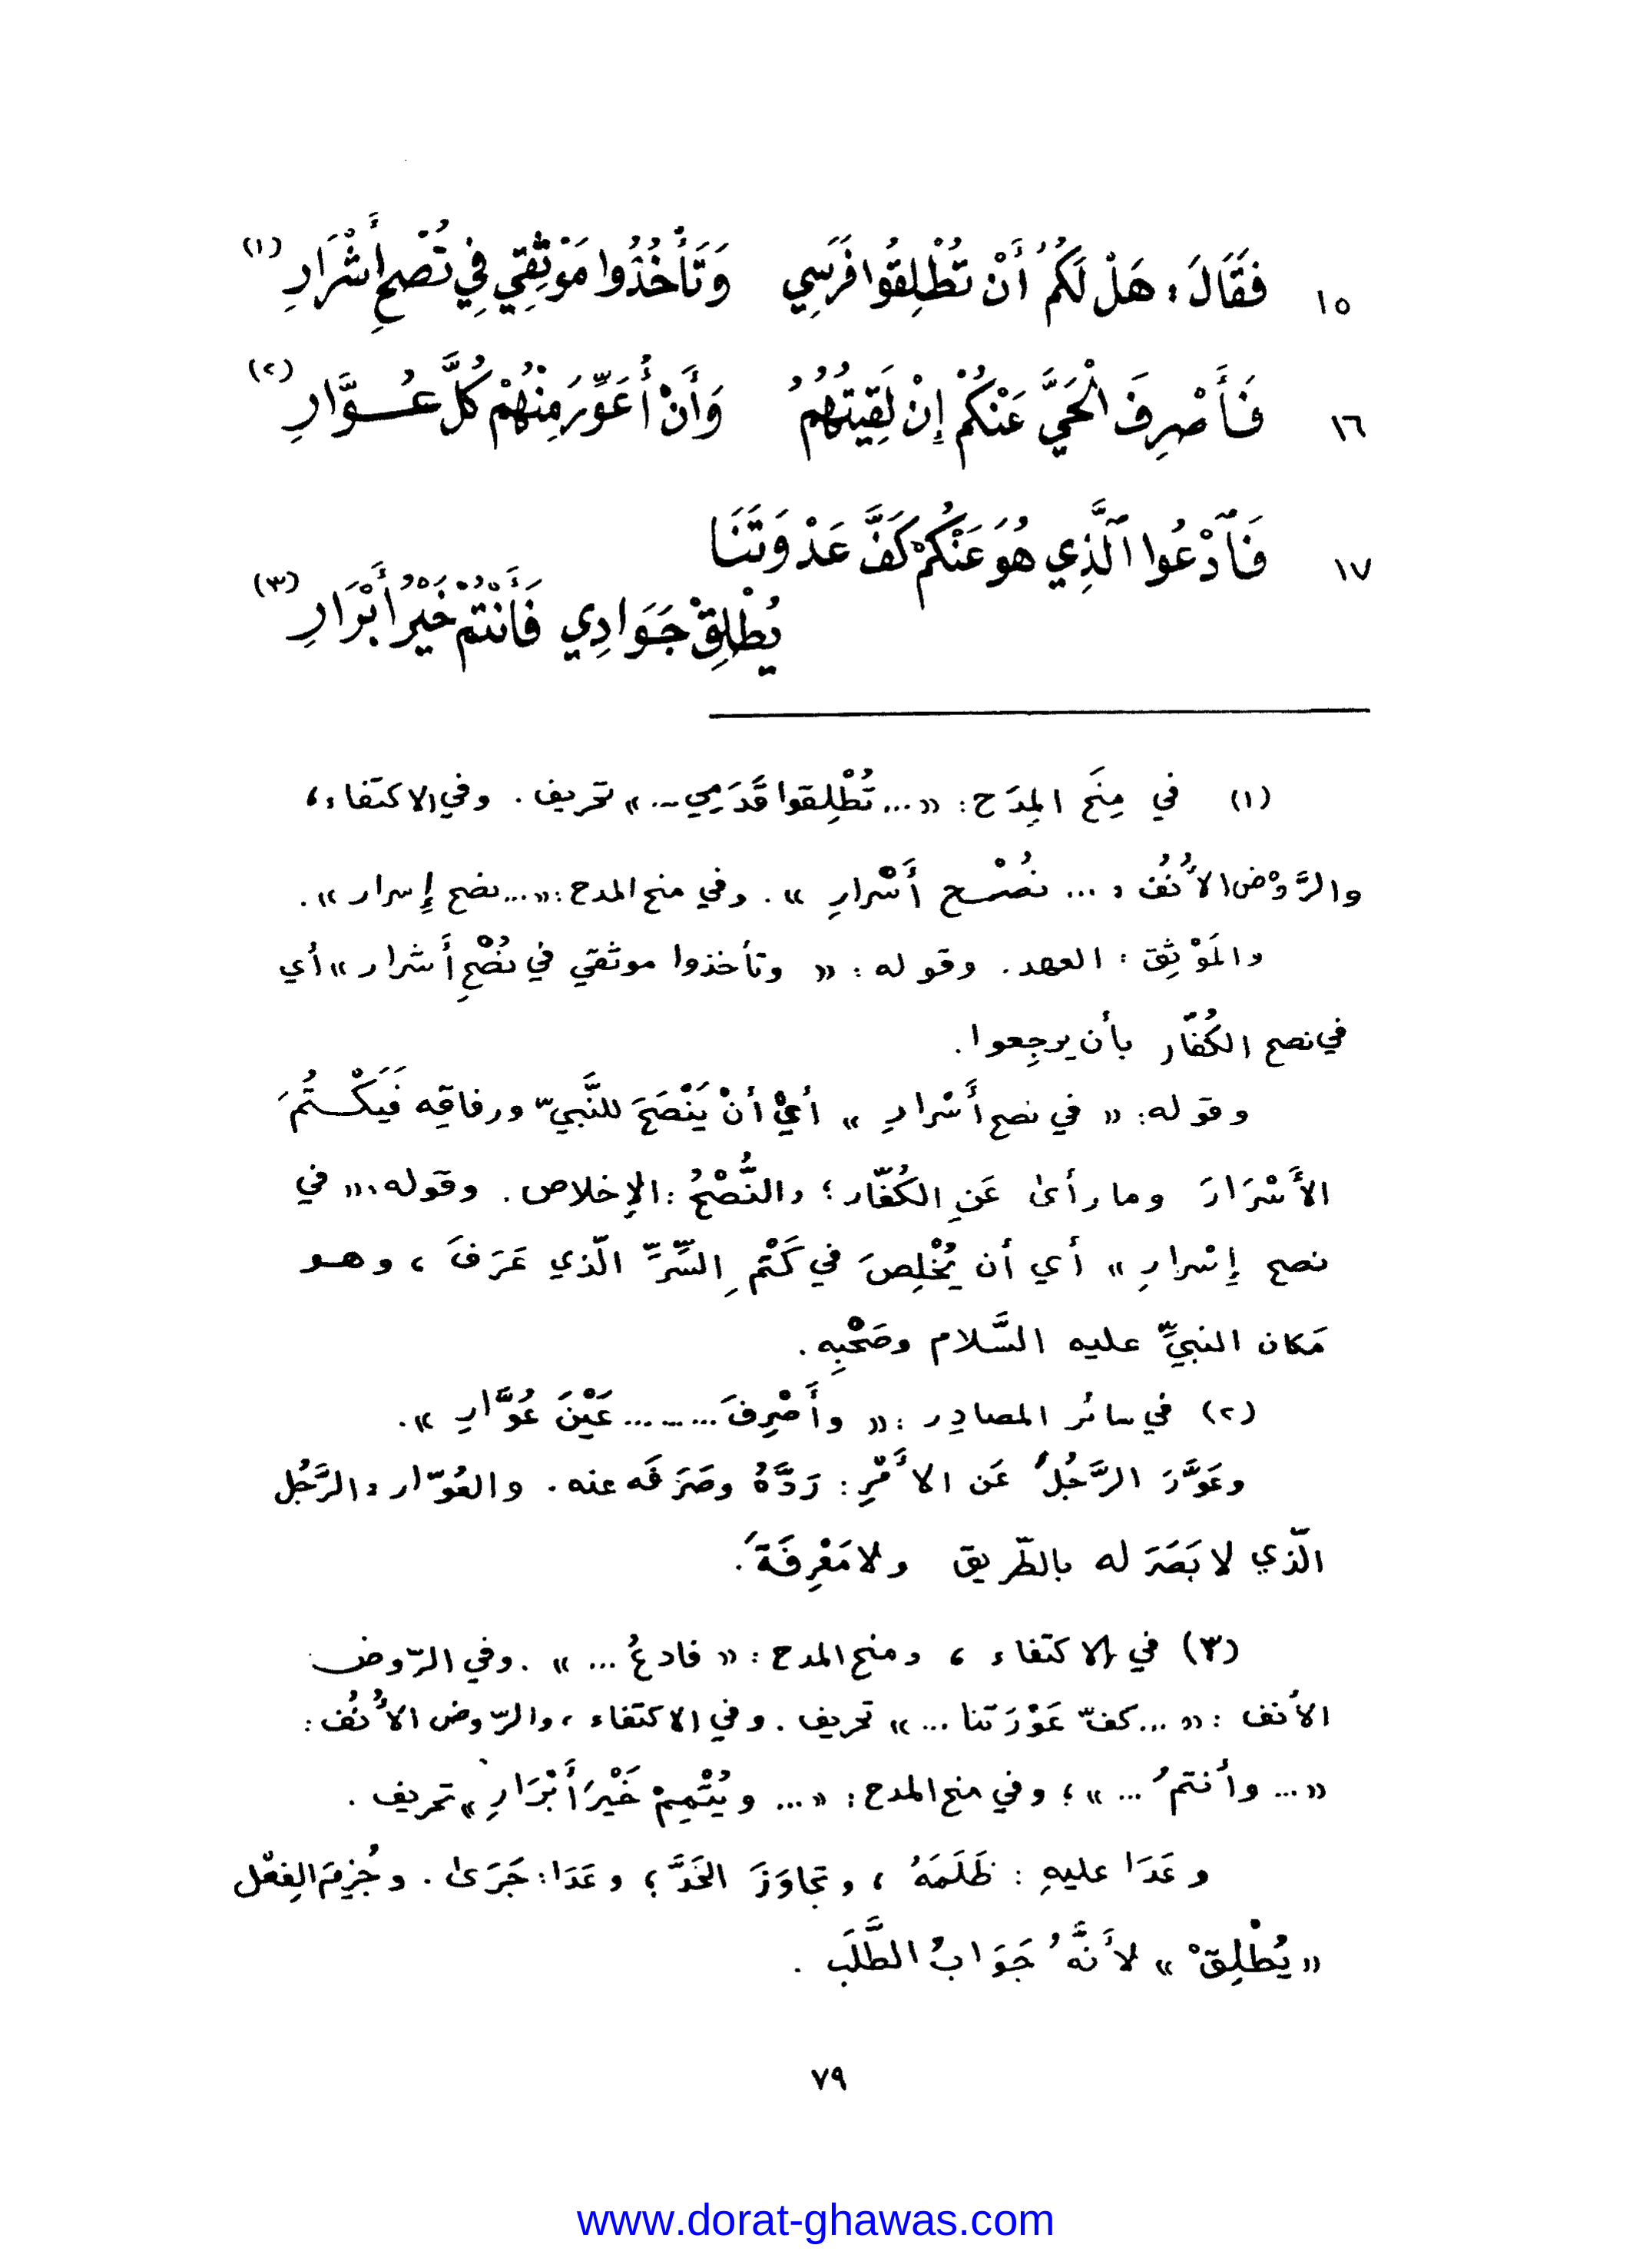 ١٥ فَقَالَ: هَلْ لَكُمُ أَنْ تُطْلِقُوا فَرَسِي وَتَأْخُذُوا مَوْثِقِي فِي نُصْحِ أَشْرَارِ (١)
١٦ فَأَصْرِفَ الْحَيَّ عَنْكُمْ إِنْ لَقِيتُهُمُ وَأَنْ أُعَوِّرَ مِنْهُمْ كُلَّ عُوَّارِ (٢)
١٧ فَٱدْعُوا ٱلَّذِي هُوَ عَنْكُمْ كَفَّ عَدْوَتَنَا
يُطْلِقْ جَوَادِي فَأَنْتُمْ خَيْرُ أَبْرَارِ (٣)
(١) في مِنَح المِدَح: «... تُطْلِقوا قَدَمِي ...» تحريف. وفي الاكتفاء،
والرَّوْض الأُنُف: ... نُصْح أَسْرارِ». وفي منح المدح: «... نصح إِسرار».
والمَوْثِق: العهد. وقوله: « وتأخذوا موثقي في نُصْحِ أَشرار » أي
في نصح الكُفّار بأن يرجِعوا.
وقوله: « في نصح أَسْرارِ » أَيْ أنْ يَنْصَحَ للنَّبيّ ورفاقِه فَيَكْتُمَ
الأَسْرَارَ وما رأى عَنِ الكُفّار؛ والنُّصْحُ: الإخلاص. وقوله: « في
نصح إِسْرارِ » أي أن يُخْلِصَ في كَتْمِ السِّرِّ الّذي عَرَفَ، وهو
مَكان النبيِّ عليه السَّلام وصَحْبِه.
(٢) في سائر المصادِر: « وأَصْرِفَ ......... عَيْنَ عُوَّارِ ».
وعَوَّرَ الرَّجُلَ عَن الأَمْرِ: رَدَّهُ وصَرَفَه عنه. والعُوّار: الرَّجُل
الّذي لا بَصَرَ له بالطّريق ولا مَعْرِفَةَ.
(٣) في الاكتفاء، ومنح المدح: « فادعُ ... ». وفي الرّوض
الأنف: «... كفّ عَوْرَتنا ...» تحريف. وفي الاكتفاء، والرّوض الأُنُف:
«... وأنتمُ ...»؛ وفي منح المدح: «... ويُتْمِمْ خَيْرَ أَبْرَارِ» تحريف.
وعَدَا عليهِ: ظَلَمَهُ، وتجاوَزَ الحَدَّ؛ وعَدَا: جَرَى. وجُزِمَ الفِعْل
« يُطْلِقْ » لأَنَّهُ جَوَابُ الطَّلَب.
٧٩
www.dorat-ghawas.com